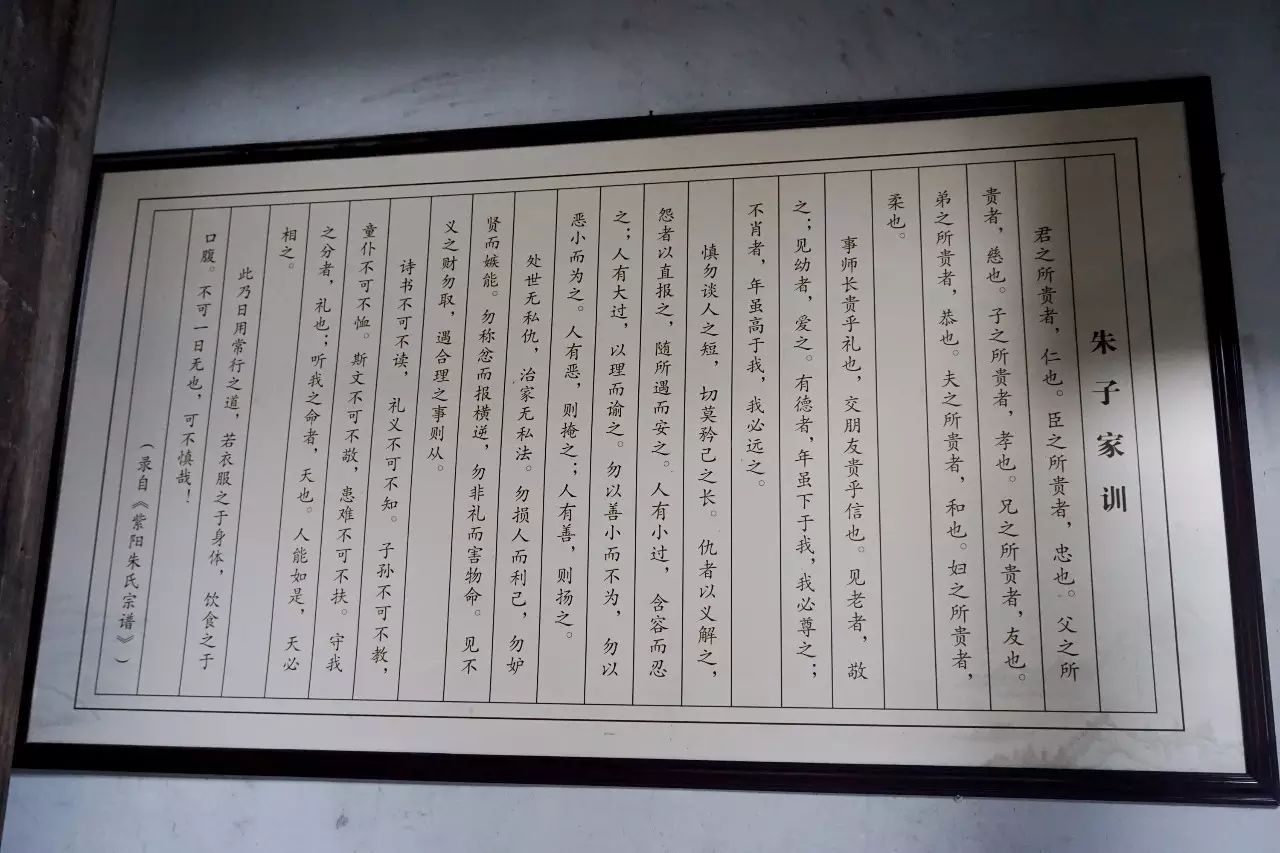 朱子家训
君之所贵者，仁也。臣之所贵者，忠也。父之所
贵者，慈也。子之所贵者，孝也。兄之所贵者，友也。
弟之所贵者，恭也。夫之所贵者，和也。妇之所贵者，
柔也。
事师长贵乎礼也，交朋友贵乎信也。见老者，敬
之；见幼者，爱之。有德者，年虽下于我，我必尊之；
不肖者，年虽高于我，我必远之。
慎勿谈人之短，切莫矜己之长。仇者以义解之，
怨者以直报之，随所遇而安之。人有小过，含容而忍
之；人有大过，以理而谕之。勿以善小而不为，勿以
恶小而为之。人有恶，则掩之；人有善，则扬之。
处世无私仇，治家无私法。勿损人而利己，勿妒
贤而嫉能。勿称忿而报横逆，勿非礼而害物命。见不
义之财勿取，遇合理之事则从。
诗书不可不读，礼义不可不知。子孙不可不教，
童仆不可不恤。斯文不可不敬，患难不可不扶。守我
之分者，礼也；听我之命者，天也。人能如是，天必
相之。
此乃日用常行之道，若衣服之于身体，饮食之于
口腹。不可一日无也，可不慎哉！
（录自《紫阳朱氏宗谱》）